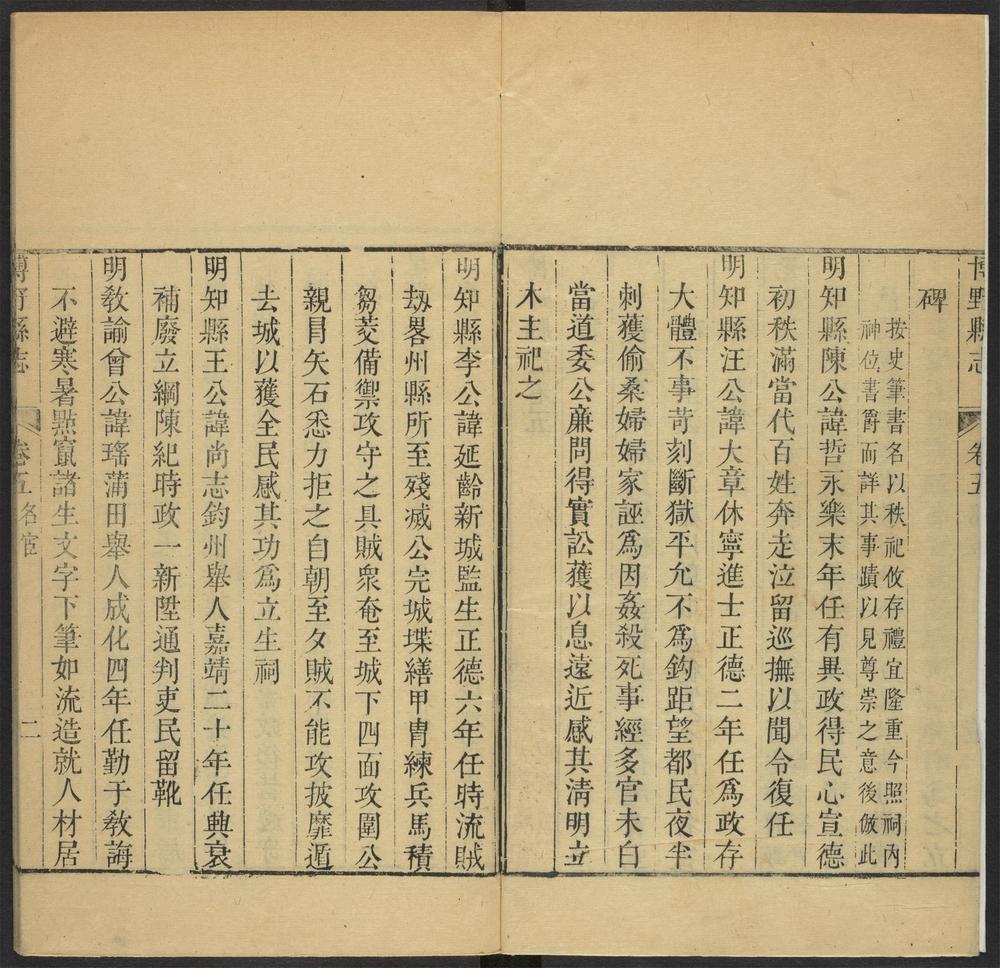 博野縣志 卷五
碑
按史筆書名以秩祀攸存禮宜隆重今照祠內
神位書爵而詳其事蹟以見尊崇之意後倣此
明知縣陳公諱哲永樂末年任有異政得民心宣德
初秩滿當代百姓奔走泣留巡撫以聞令復任
明知縣汪公諱大章休寧進士正德二年任爲政存
大體不事苛刻斷獄平允不爲鈎距望都民夜半
刺獲偷桑婦婦家誣爲因姦殺死事經多官未白
當道委公廉問得實訟獲以息遠近感其清明立
木主祀之
明知縣李公諱延齡新城監生正德六年任時流賊
刼畧州縣所至殘滅公完城堞繕甲冑練兵馬積
芻茭備禦攻守之具賊衆奄至城下四面攻圍公
親冒矢石悉力拒之自朝至夕賊不能攻披靡遁
去城以獲全民感其功爲立生祠
明知縣王公諱尚志鈞州舉人嘉靖二十年任典衰
補廢立綱陳紀時政一新陞通判吏民留靴
明教諭曾公諱瑤蒲田舉人成化四年任勤于教誨
不避寒暑㸃竄諸生文字下筆如流造就人材居
博野縣志 卷五 名宦 二